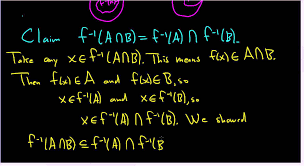 Claim f⁻¹(A∩B) = f⁻¹(A) ∩ f⁻¹(B).
Take any x∈f⁻¹(A∩B). This means f(x)∈A∩B.
Then f(x)∈A and f(x)∈B, so
x∈f⁻¹(A) and x∈f⁻¹(B), so
x∈f⁻¹(A) ∩ f⁻¹(B). We showed
f⁻¹(A∩B) ⊆ f⁻¹(A) ∩ f⁻¹(B